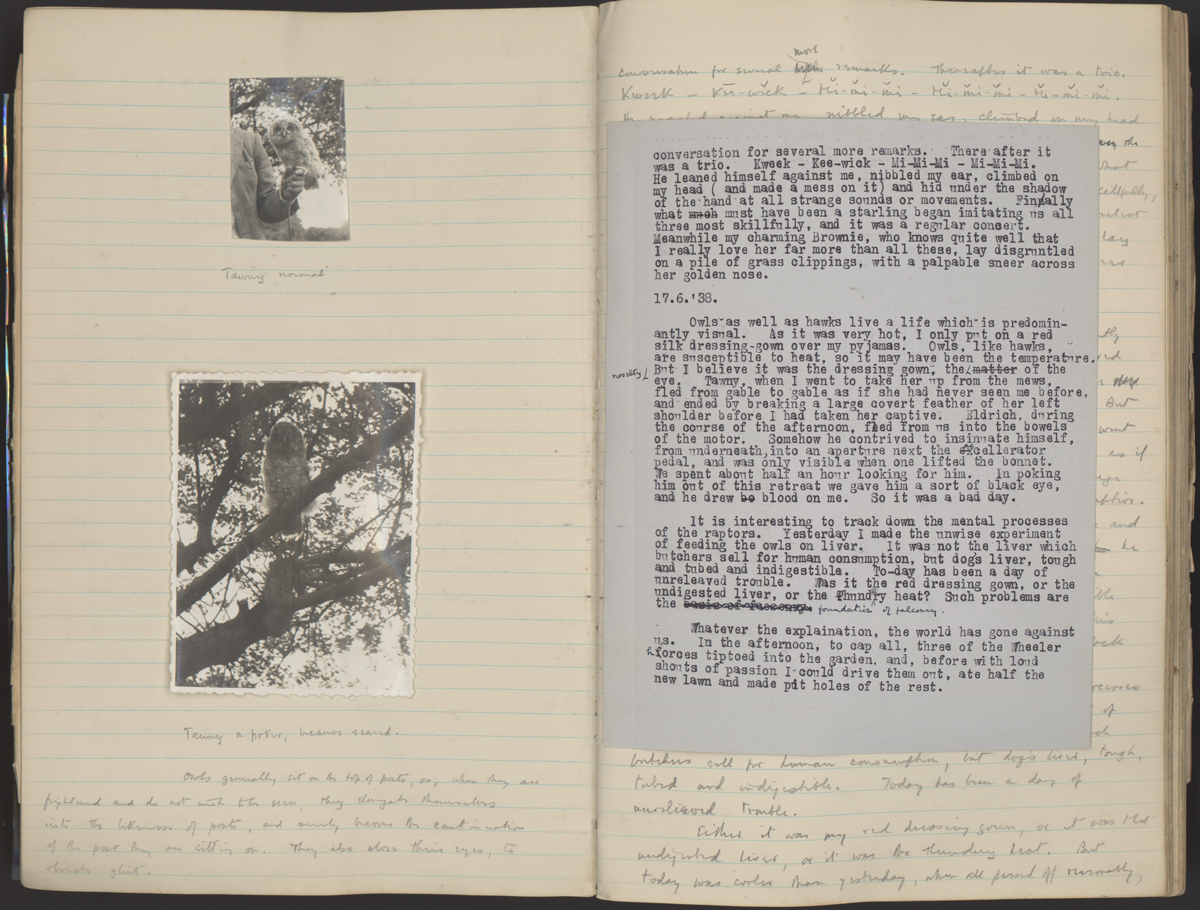 Tawny normal
Tawny a poker, because scared.
Owls generally sit on the top of posts, so, when they are
frightened and do not wish to be seen, they elongate themselves
into the likeness of posts, and merely become the continuation
of the post they are sitting on. They also close their eyes, to
obviate glint.
more
conversation for several remarks. Thereafter it was a trio.
Kweek – Kee-wick – Mi-mi-mi – Mi-mi-mi – Mi-mi-mi.
He leaned against me, nibbled my ear, climbed on my head
conversation for several more remarks. There after it
was a trio. Kweek - Kee-wick - Mi-Mi-Mi - Mi-Mi-Mi.
He leaned himself against me, nibbled my ear, climbed on
my head ( and made a mess on it) and hid under the shadow
of the hand at all strange sounds or movements. Finally
what much must have been a starling began imitating us all
three most skillfully, and it was a regular concert.
Meanwhile my charming Brownie, who knows quite well that
I really love her far more than all these, lay disgruntled
on a pile of grass clippings, with a palpable sneer across
her golden nose.
17.6.'38.
Owls as well as hawks live a life which is predomin-
antly visual. As it was very hot, I only put on a red
silk dressing-gown over my pyjamas. Owls, like hawks,
are susceptible to heat, so it may have been the temperature.
But I believe it was the dressing gown, the matter of the
novelty/
eye. Tawny, when I went to take her up from the mews,
fled from gable to gable as if she had never seen me before,
and ended by breaking a large covert feather of her left
shoulder before I had taken her captive. Eldrich, during
the course of the afternoon, fled from us into the bowels
of the motor. Somehow he contrived to insinuate himself,
from underneath, into an aperture next the excellerator
pedal, and was only visible when one lifted the bonnet.
We spent about half an hour looking for him. In poking
him out of this retreat we gave him a sort of black eye,
and he drew be blood on me. So it was a bad day.
It is interesting to track down the mental processes
of the raptors. Yesterday I made the unwise experiment
of feeding the owls on liver. It was not the liver which
butchers sell for human consumption, but dogs liver, tough
and tubed and indigestible. To-day has been a day of
unreleaved trouble. Was it the red dressing gown, or the
undigested liver, or the thundry heat? Such problems are
the basis of falconry. foundation of falconry.
Whatever the explaination, the world has gone against
us. In the afternoon, to cap all, three of the Wheeler
horses tiptoed into the garden, and, before with loud
shouts of passion I could drive them out, ate half the
new lawn and made pit holes of the rest.
butchers sell for human consumption, but dog's liver, tough,
tubed and indigestible. Today has been a day of
unrelieved trouble.
Either it was my red dressing gown, or it was that
undigested liver, or it was the thundery heat. But
today was cooler than yesterday, when all passed off reasonably,